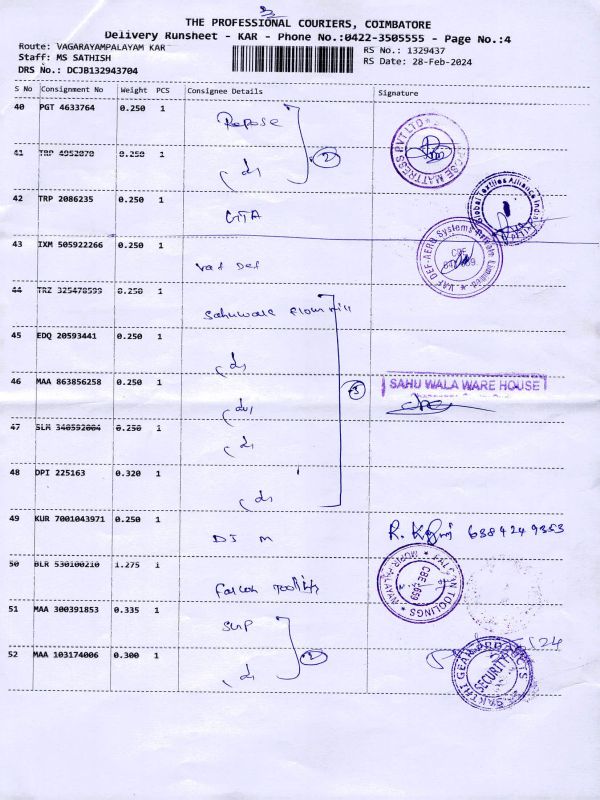 3
THE PROFESSIONAL COURIERS, COIMBATORE
Delivery Runsheet - KAR - Phone No.:0422-3505555 - Page No.:4
Route: VAGARAYAMPALAYAM KAR
RS No.: 1329437
Staff: MS SATHISH
RS Date: 28-Feb-2024
DRS No.: DCJB132943704
S No Consignment No Weight PCS Consignee Details Signature
40 PGT 4633764 0.250 1 Repose
41 TRP 4952070 0.250 1
42 TRP 2086235 0.250 1 GTA
43 IXM 505922266 0.250 1 Vaf Def
44 TRZ 325478599 0.250 1 Sahuwala Flour Mill
45 EDQ 20593441 0.250 1
46 MAA 863856258 0.250 1 SAHU WALA WARE HOUSE
47 SLM 340592004 0.250 1
48 DPI 225163 0.320 1
49 KUR 7001043971 0.250 1 DJ M R. 6384249353
50 BLR 530100210 1.275 1 Falcon Tooling
51 MAA 300391853 0.335 1
52 MAA 103174006 0.300 1
MATTRESS PVT LTD
Global Textiles Alliance India
VAF DEF-AERO Systems Private Limited
FALCON TOOLINGS
SAKTHI GEAR PRODUCTS
SECURITY